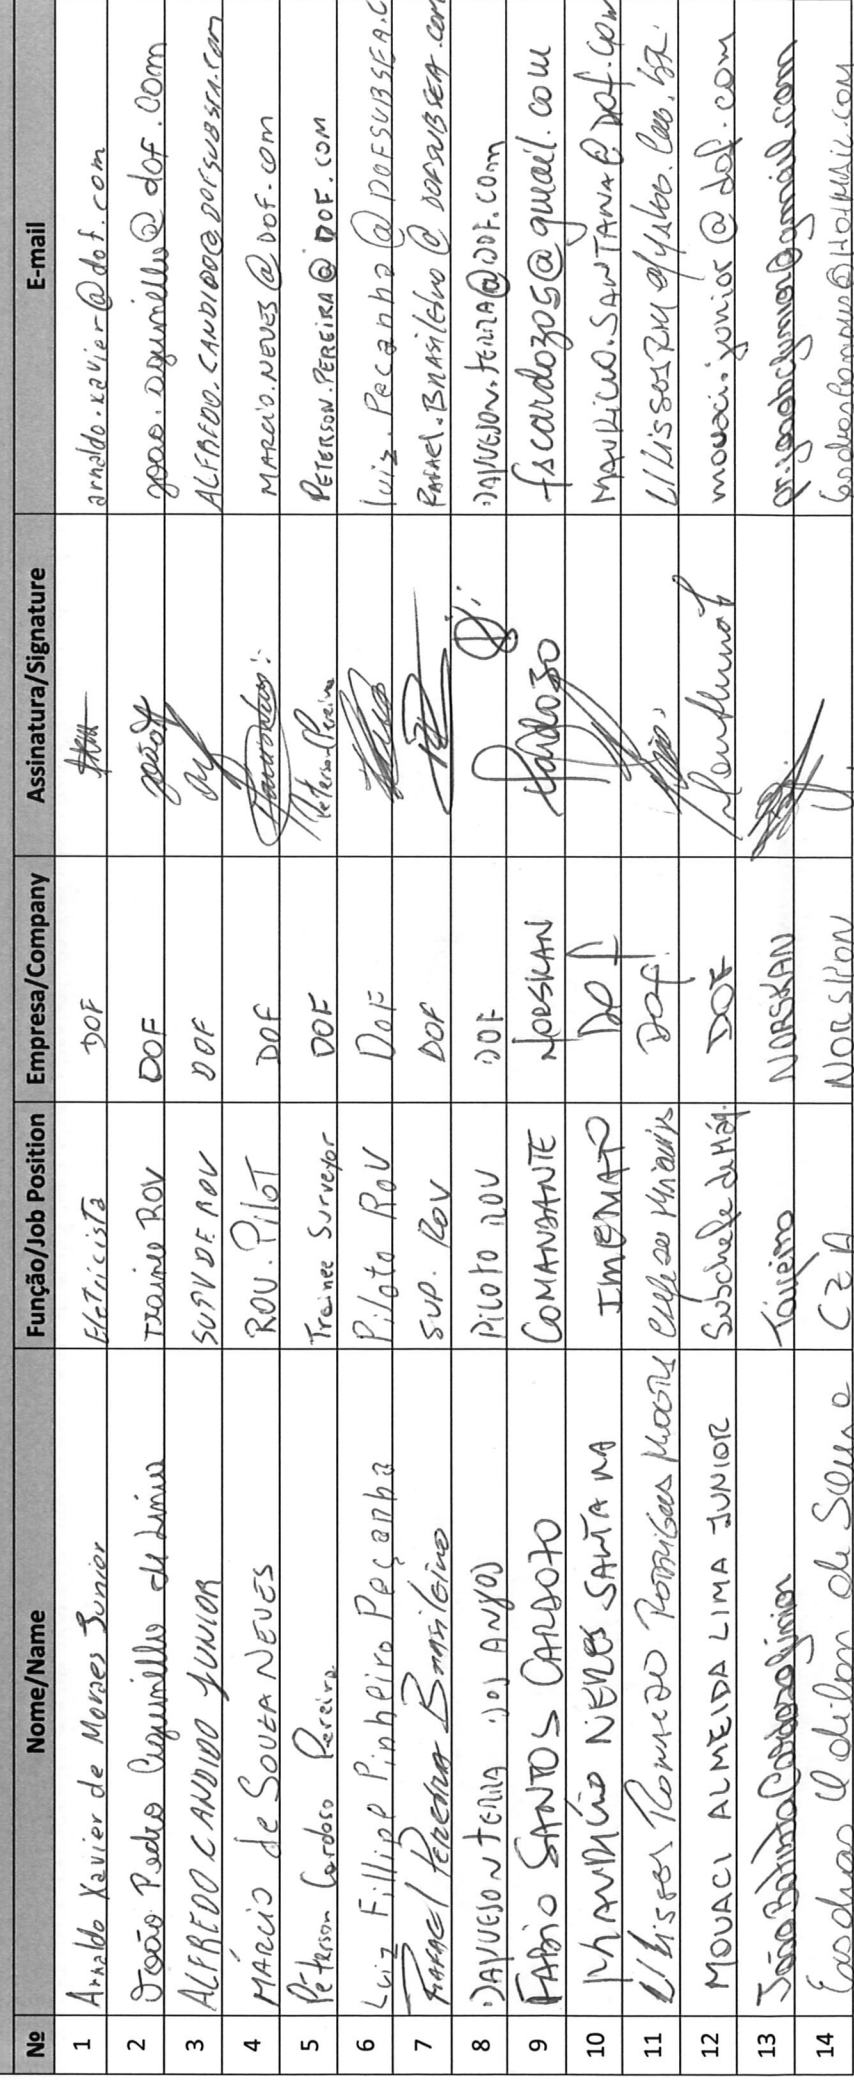 Nº Nome/Name Função/Job Position Empresa/Company Assinatura/Signature E-mail
1 Arnaldo Xavier de Moraes Junior Eletricista DOF arnaldo.xavier@dof.com
2 João Pedro de Lima Trainee ROV DOF João
3 ALFREDO CANDIDO JUNIOR SUPV DE ROV DOF ALFREDO.CANDIDO@DOFSUBSEA.com
4 MÁRCIO de SOUZA NEVES ROV. PILOT DOF MARCIO.NEVES@DOF.com
5 Peterson Cardoso Pereira Trainee Surveyor DOF Peterson Pereira PETERSON.PEREIRA@DOF.COM
6 Luiz Fillipe Pinheiro Peçanha Piloto ROV DOF Luiz.Peçanha@DOFSUBSEA.C
7 RAFAEL PEREIRA BRASILEIRO SUP. ROV DOF RAFAEL.BRASILEIRO@DOFSUBSEA.com
8 DOS ANJOS PILOTO ROV DOF
9 FABIO SANTOS CARDOZO COMANDANTE NORSKAN Cardozo fscardozos@gmail.com
10 MAURÍCIO NERES SANTANA IMEDIATO DOF MAURICIO.SANTANA@DOF.com
11 Ulisses Romredo Rodrigues DOF
12 MOUACI ALMEIDA LIMA JUNIOR Subchefe de Máq. DOF mouaci.junior@dof.com
13 João Batista Cardoso Junior Taifeiro NORSKAN
14 de Souza CZA NORSKAN